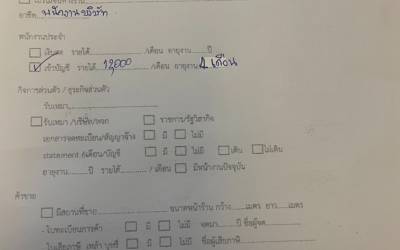 อาชีพ..พนักงานบริษัท
พนักงานประจำ
เงินสด รายได้............/เดือน อายุงาน.......ปี
เข้าบัญชี รายได้..12,000../เดือน อายุงาน 4 เดือน
กิจการส่วนตัว / ธุรกิจส่วนตัว
รับเหมา
รับเหมา /บริษัท/หจก ราชการ/รัฐวิสาหกิจ
เอกสารจดทะเบียน/สัญญาจ้าง มี ไม่มี
statement 6เดือน/บัญชี มี ไม่มี เดิน ไม่เดิน
อายุงาน.......ปี รายได้........./เดือน มีหน้างานปัจจุบัน
ค้าขาย
มีสถานที่ขาย............ขนาดหน้าร้าน กว้าง......เมตร ยาว......เมตร
- ใบทะเบียนการค้า มี ไม่มี จดมา.......ปี ชื่อผู้จด
- ใบเสียภาษี เหล้า บุหรี่ มี ไม่มี ชื่อผู้เสียภาษี